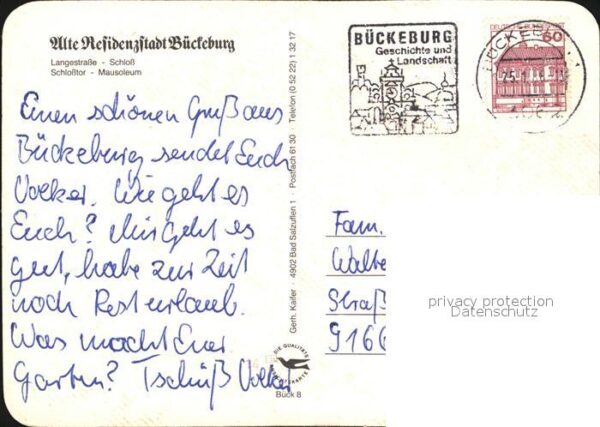 Alte Residenzstadt Bückeburg
Langestraße - Schloß
Schloßtor - Mausoleum
BÜCKEBURG
Geschichte und
Landschaft
DEUTSCHE BUNDESPOST
60
BÜCKEBURG 1
Einen schönen Gruß aus
Bückeburg sendet Euch
Volker. Wie geht es
Euch? Mir geht es
gut, habe zur Zeit
noch Resturlaub.
Was macht Euer
Garten? Tschüß Volker
Gerh. Kaifer · 4902 Bad Salzuflen 1 · Postfach 61 30 · Telefon (0 52 22) 1 32 17
DIE QUALITÄTS
Bück 8
Fam.
Walte
Straß
9166
privacy protection
Datenschutz